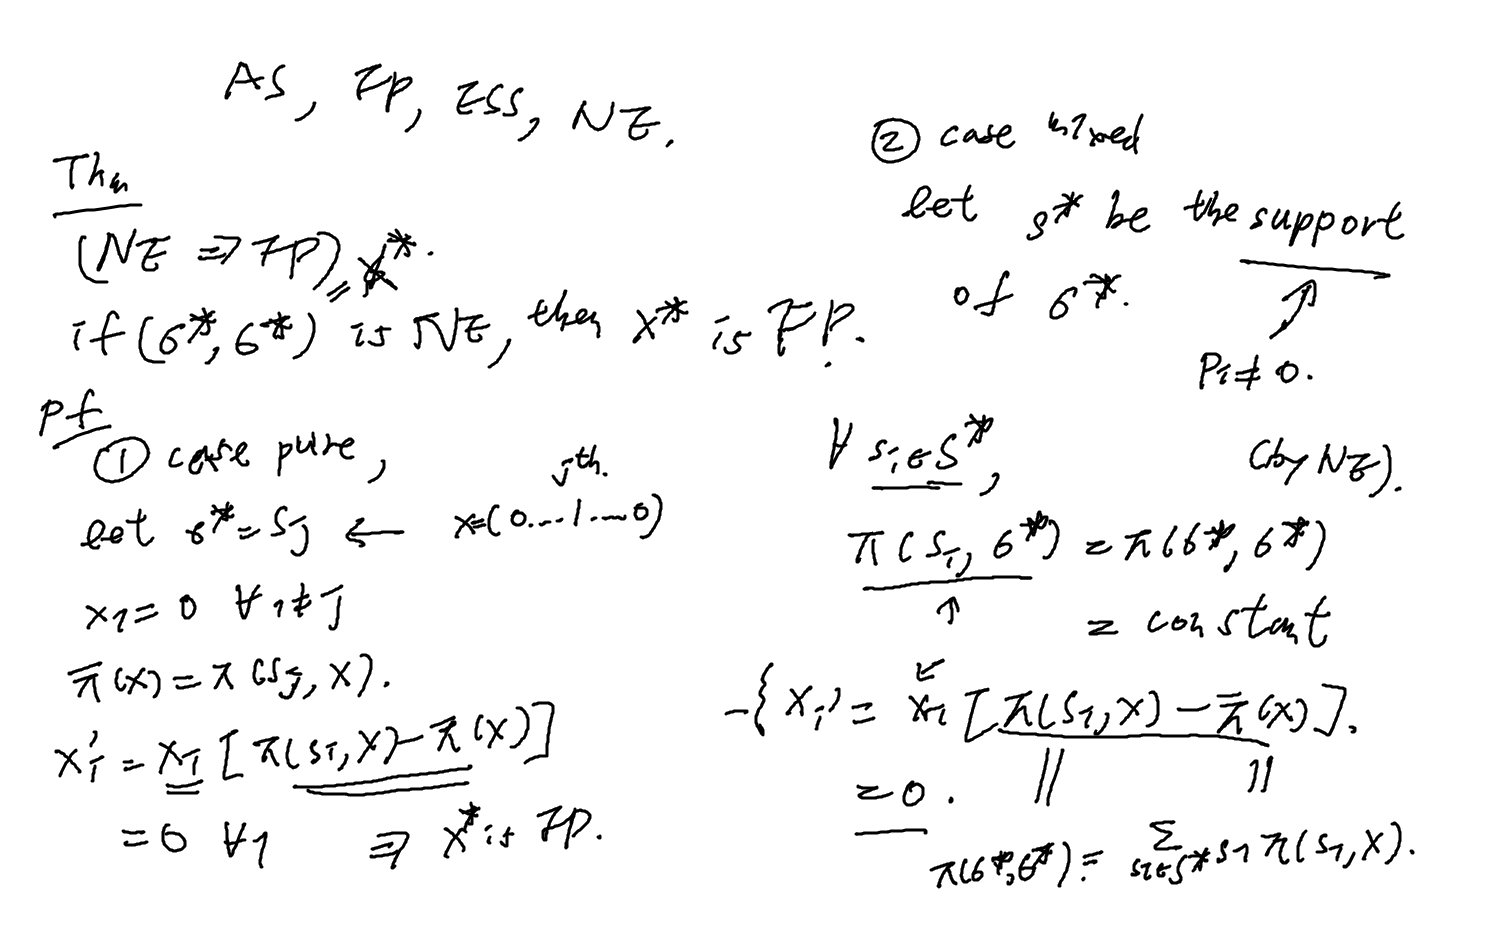 AS, FP, ESS, NE.
Thm
(NE ⇒ FP)
if (σ*, σ*) is NE, then x* is FP.
pf
① case pure,
jth.
let σ* = Sj ← x=(0...1...0)
xi = 0 ∀i≠j
π̄(x) = π(Sj, x).
xi' = xi [π(si, x) - π̄(x)]
= 0 ∀i ⇒ x* is FP.
② case mixed
let s* be the support
of σ*.
↑
Pi ≠ 0.
∀ si ∈ S*, (by NE).
π(Si, σ*) = π(σ*, σ*)
↑ = constant
-{ xi' = xi [π(Si, x) - π̄(x)].
= 0. || ||
π(σ*, σ*) = Σ si π(si, x).
si∈S*